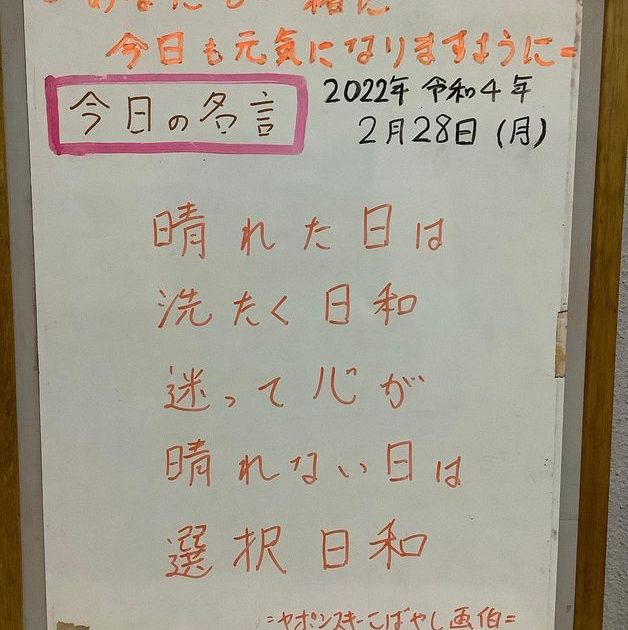 あなたも一緒に
今日も元気になりますように=
今日の名言
2022年 令和4年
2月28日(月)
晴れた日は
洗たく日和
迷って心が
晴れない日は
選択日和
=ヤポンスキーこばやし画伯=